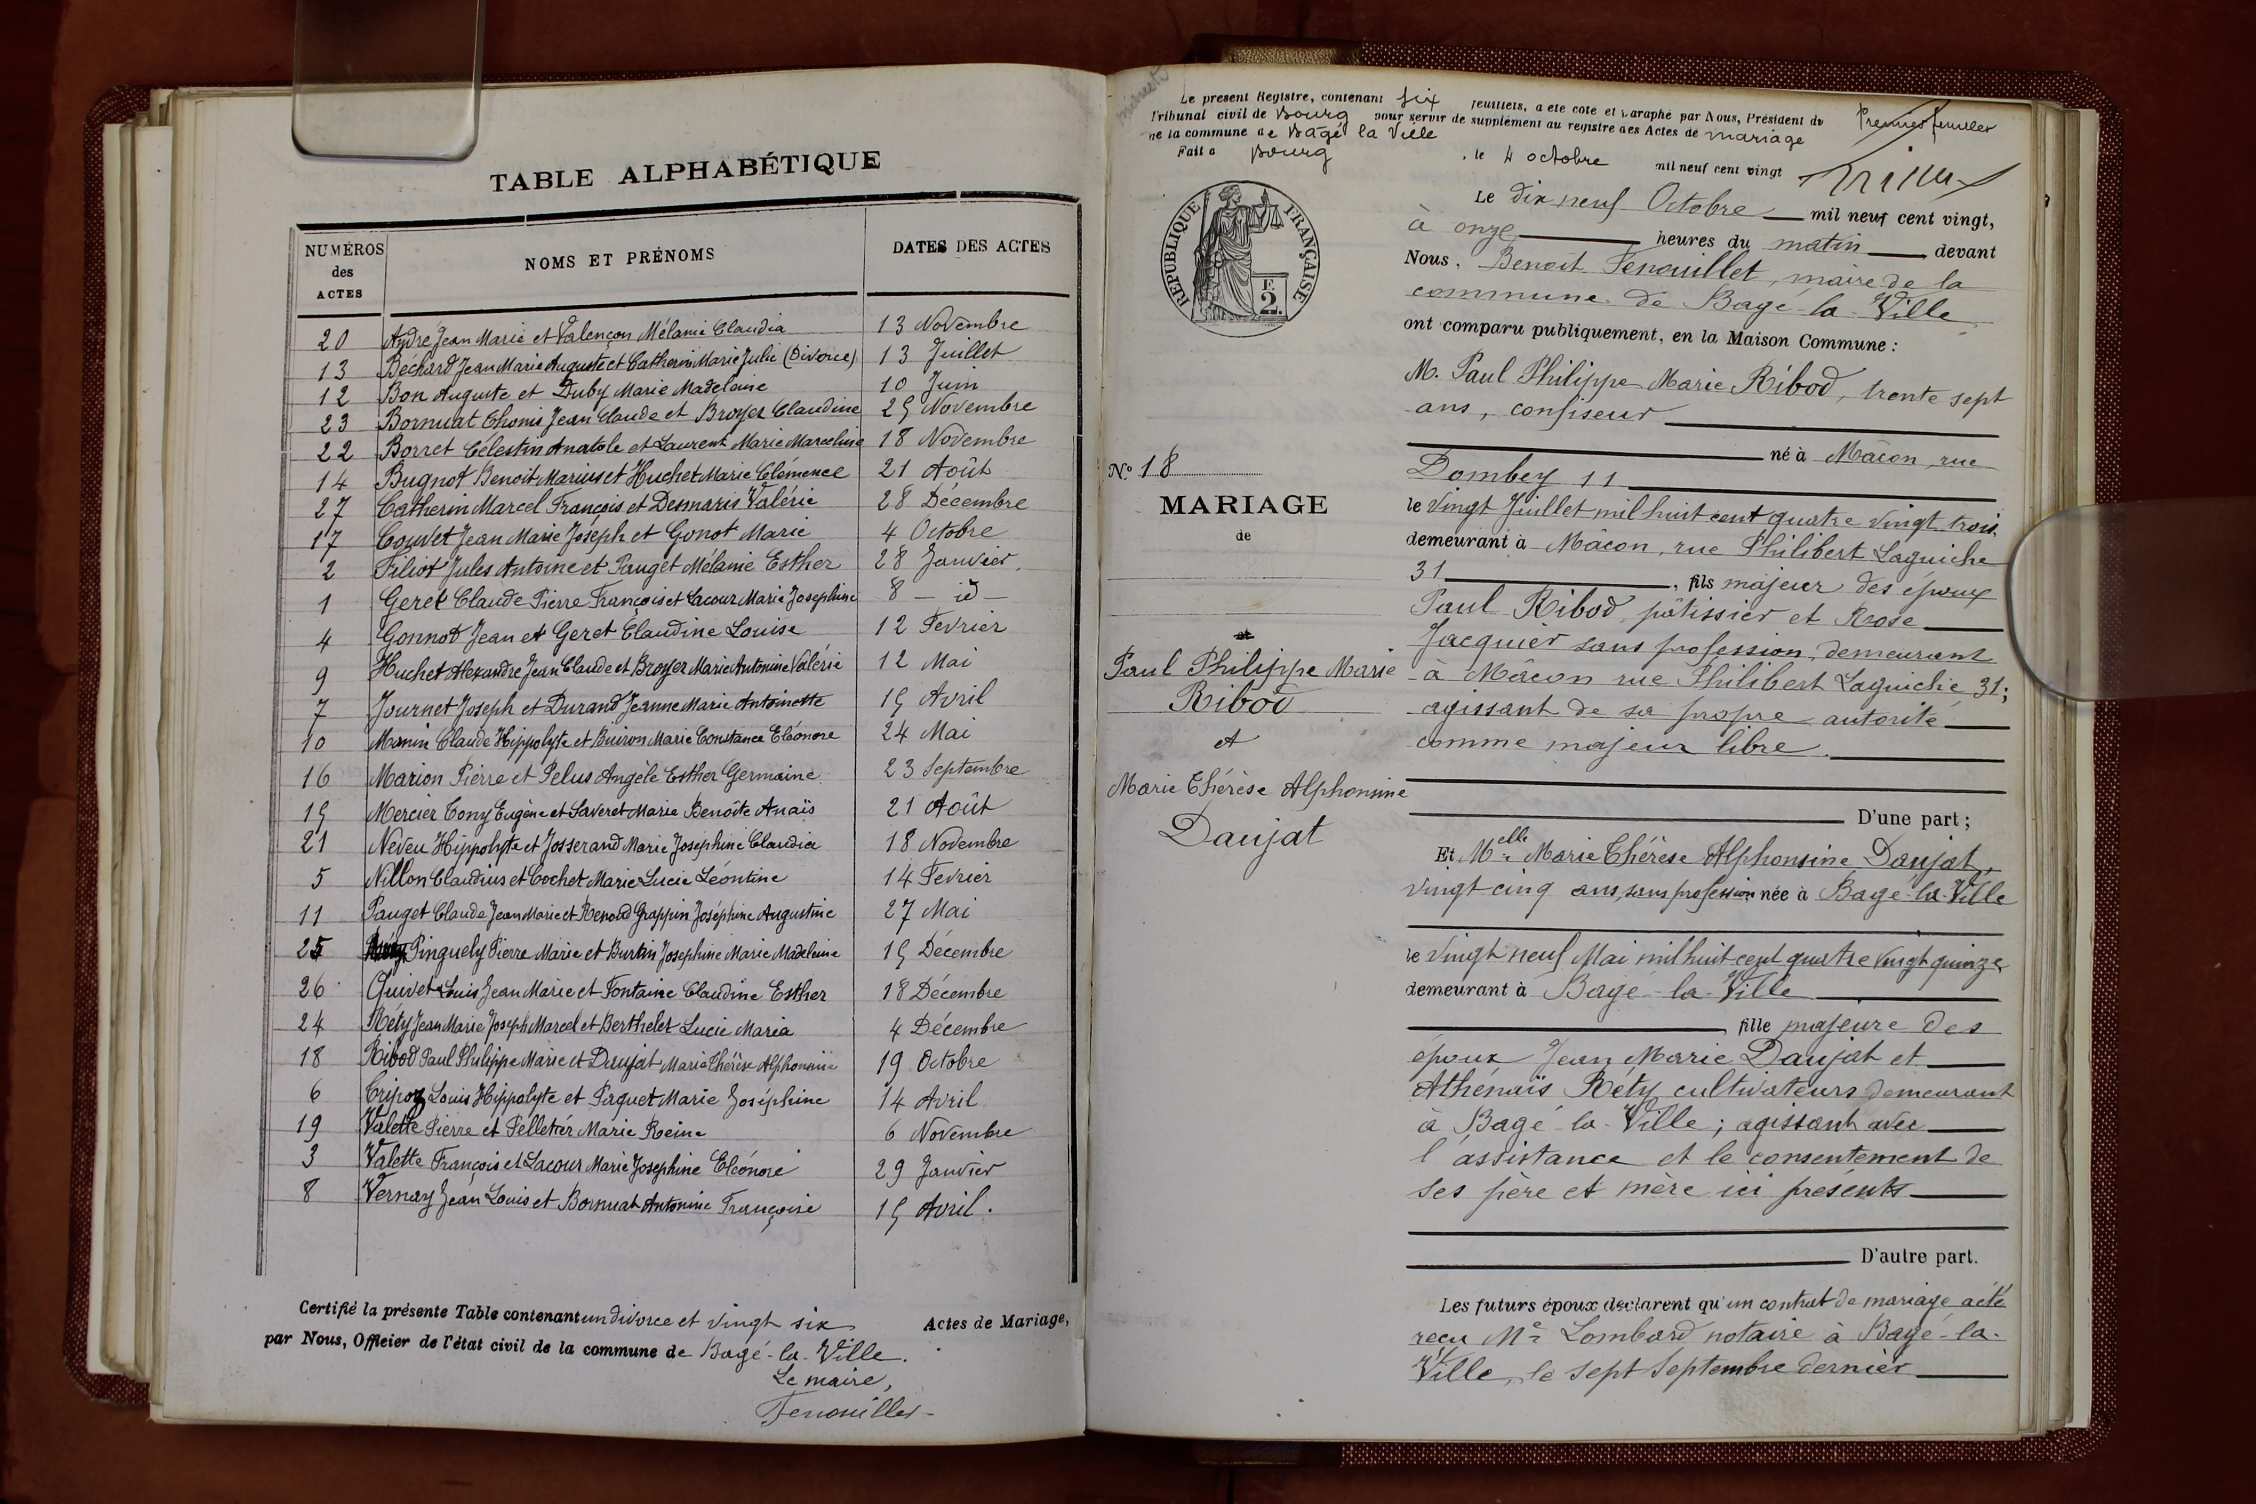 TABLE ALPHABÉTIQUE
NUMÉROS des ACTES
NOMS ET PRÉNOMS
DATES DES ACTES
20 André Jean Marie et Valençon Mélanie Claudia 13 Novembre
13 Béchard Jean Marie Auguste et Catherin Marie Julie (Divorce) 13 Juillet
12 Bon Auguste et Duby Marie Madeleine 10 Juin
23 Bornuat Thonis Jean Claude et Broyer Claudine 25 Novembre
22 Borret Célestin Anatole et Laurent Marie Marceline 18 Novembre
14 Bugnot Benoit Marius et Huchet Marie Clémence 21 Août
27 Catherin Marcel François et Desmaris Valérie 28 Décembre
17 Couvet Jean Marie Joseph et Gonot Marie 4 Octobre
2 Filiot Jules Antoine et Pauget Mélanie Esther 28 Janvier.
1 Geret Claude Pierre François et Lacour Marie Josephine 8 - id -
4 Gonnod Jean et Geret Claudine Louise 12 Fevrier
9 Huchet Alexandre Jean Claude et Broyer Marie Antonine Valérie 12 Mai
7 Journet Joseph et Durand Jeanne Marie Antoinette 15 Avril
10 Manin Claude Hippolyte et Buiron Marie Constance Eléonore 24 Mai
16 Marion Pierre et Pelus Angèle Esther Germaine 23 Septembre
15 Mercier Tony Eugène et Saveret Marie Benoîte Anaïs 21 Août
21 Neveu Hippolyte et Josserand Marie Josephine Claudia 18 Novembre
5 Nillon Claudius et Cochet Marie Lucie Léontine 14 Fevrier
11 Pauget Claude Jean Marie et Renoud Grappin Joséphine Augustine 27 Mai
25 Pinguely Pierre Marie et Burtin Josephine Marie Madeleine 15 Décembre
26 Quivet Louis Jean Marie et Fontaine Claudine Esther 18 Décembre
24 Réty Jean Marie Joseph Marcel et Berthelet Lucie Maria 4 Décembre
18 Ribod Paul Philippe Marie et Daujat Marie Thérèse Alphonsine 19 Octobre
6 Tripoz Louis Hippolyte et Piquet Marie Joséphine 14 Avril
19 Valette Pierre et Pelletier Marie Reine 6 Novembre
3 Valette François et Lacour Marie Josephine Eléonore 29 Janvier
8 Vernay Jean Louis et Bornuat Antonine Françoise 15 Avril.
Certifié la présente Table contenant un divorce et vingt six Actes de Mariage,
par Nous, Officier de l'état civil de la commune de Bagé-la-Ville.
Le maire,
Fenouillet
Le présent Registre, contenant six feuillets, a été coté et paraphé par Nous, Président du
Tribunal civil de Bourg pour servir de supplément au registre des Actes de mariage
de la commune de Bagé la Ville
Fait à Bourg, le 4 octobre mil neuf cent vingt
Premier feuillet
RÉPUBLIQUE FRANÇAISE
E.
2.
No 18
MARIAGE
de
et
Paul Philippe Marie
Ribod
et
Marie Thérèse Alphonsine
Daujat
Le dix neuf Octobre mil neuf cent vingt,
à onze heures du matin devant
Nous, Benoit Fenouillet, maire de la
commune de Bagé-la-Ville
ont comparu publiquement, en la Maison Commune :
M. Paul Philippe Marie Ribod, trente sept
ans, confiseur
né à Mâcon, rue
Dombey 11
le vingt Juillet mil huit cent quatre vingt trois
demeurant à Mâcon, rue Philibert Laguiche
31, fils majeur des époux
Paul Ribod, pâtissier et Rose
Jacquier sans profession, demeurant
à Mâcon rue Philibert Laguiche 31;
agissant de sa propre autorité
comme majeur libre.
D'une part ;
Et Melle Marie Thérèse Alphonsine Daujat,
vingt cinq ans, sans profession née à Bagé-la-Ville
le vingt neuf Mai mil huit cent quatre vingt quinze
demeurant à Bagé-la-Ville
fille majeure des
époux Jean Marie Daujat et
Athénaïs Réty cultivateurs demeurant
à Bagé-la-Ville ; agissant avec
l'assistance et le consentement de
ses père et mère ici présents
D'autre part.
Les futurs époux déclarent qu'un contrat de mariage a été
reçu Me Lombard notaire à Bagé-la-
Ville, le sept Septembre dernier